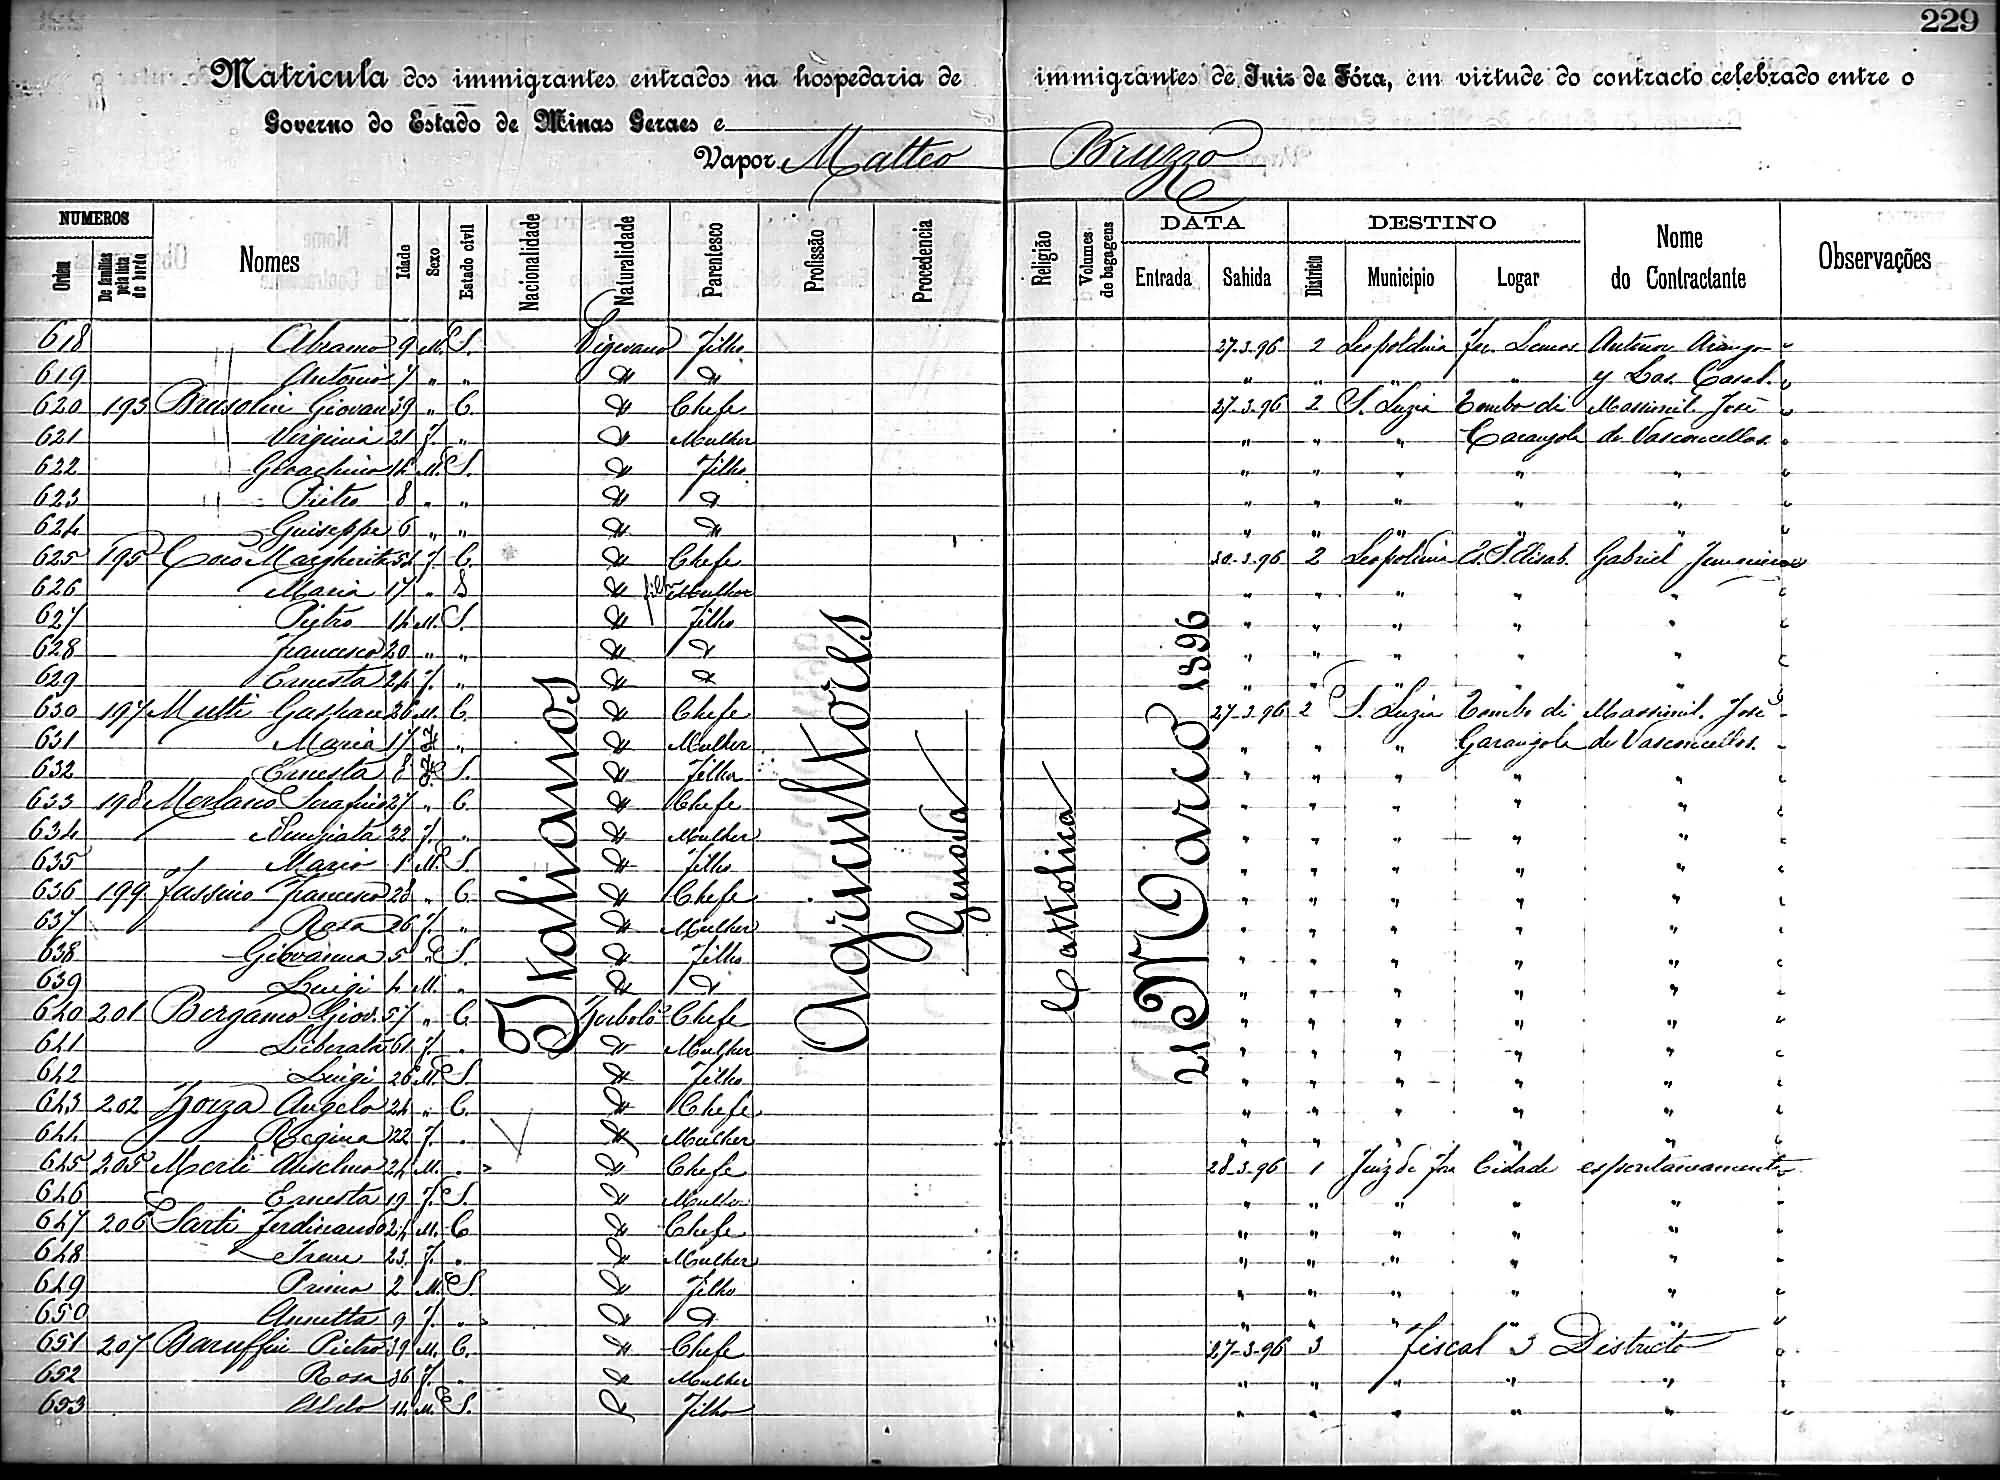 229
Matricula dos immigrantes entrados na hospedaria de immigrantes de Juiz de Fóra, em virtude do contracto celebrado entre o
Governo do Estado de Minas Geraes e
Vapor Matteo Bruzzo
NUMEROS DATA DESTINO
Ordem De familias pela lista de bordo Nomes Idade Sexo Estado civil Nacionalidade Naturalidade Parentesco Profissão Procedencia Religião Volumes de bagagens Entrada Sahida Districto Municipio Logar Nome do Contractante Observações
Italianos Agricultores Genova Cattolica 21 Março 1896
618 Abramo 9 M. S. Vigevano Filho 27-3-96 2 Leopoldina Antenor
619 Antonio 7 " " " " " " " " y
620 193 Giovan 39 " C. " Chefe 27-3-96 2 S. Luzia Tombo di Massimil. José
621 Virginia 21 F. " " Mulher " " " Carangola de Vasconcellos.
622 14 M. S. " Filho " " " " "
623 Pietro 8 " " " " " " " " "
624 Guiseppe 6 " " " " " " " " "
625 195 Margherita 54 F. C. " Chefe 30-3-96 2 Leopoldina Gabriel
626 Maria 17 " S " Mulher " " " " "
627 Pietro 14 M. S. " Filho " " " " "
628 Francesco 20 " " " " " " " " "
629 Ernesta 24 F. " " " " " " " "
630 197 Multi Gaspare 26 M. C. " Chefe 27-3-96 2 S. Luzia Tombo di Massimil. José
631 Maria 17 F " " Mulher " " " Garangola de Vasconcellos.
632 Ernesta 8 F S. " Filha " " " " "
633 198 Merlano Serafino 27 " C. " Chefe " " " " "
634 Nunziata 22 F. " " Mulher " " " " "
635 Mario 1 M. S. " Filho " " " " "
636 199 Fassino Francesco 28 " C. " Chefe " " " " "
637 Rosa 26 F. " " Mulher " " " " "
638 Giovanna 5 " S. " Filho " " " " "
639 Luigi 4 M. " " " " " " " "
640 201 Bergamo Giov. 57 " C. Zerbolò Chefe " " " " "
641 Liberata 61 F. " " Mulher " " " " "
642 Luigi 26 M. S. " Filho " " " " "
643 202 Zorza Angelo 24 " C. " Chefe " " " " "
644 Regina 22 F. " " Mulher " " " " "
645 205 Merli Anselmo 24 M. " " Chefe 28-3-96 1 Juiz de Fora Cidade espontaneamente
646 Ernesta 19 F. S. " Mulher " " " " "
647 206 Sarti Ferdinando 24 M. C " Chefe " " " " "
648 Irene 23 F. " " Mulher " " " " "
649 Primo 2 M. S. " Filho " " " " "
650 Annetta 9 F. " " " " " " " "
651 207 Baruffin Pietro 39 M. C. " Chefe 27-3-96 3 Fiscal 3 Districto
652 Rosa 36 F. " " Mulher " " " " "
653 14 M. S. " Filho " " " " "